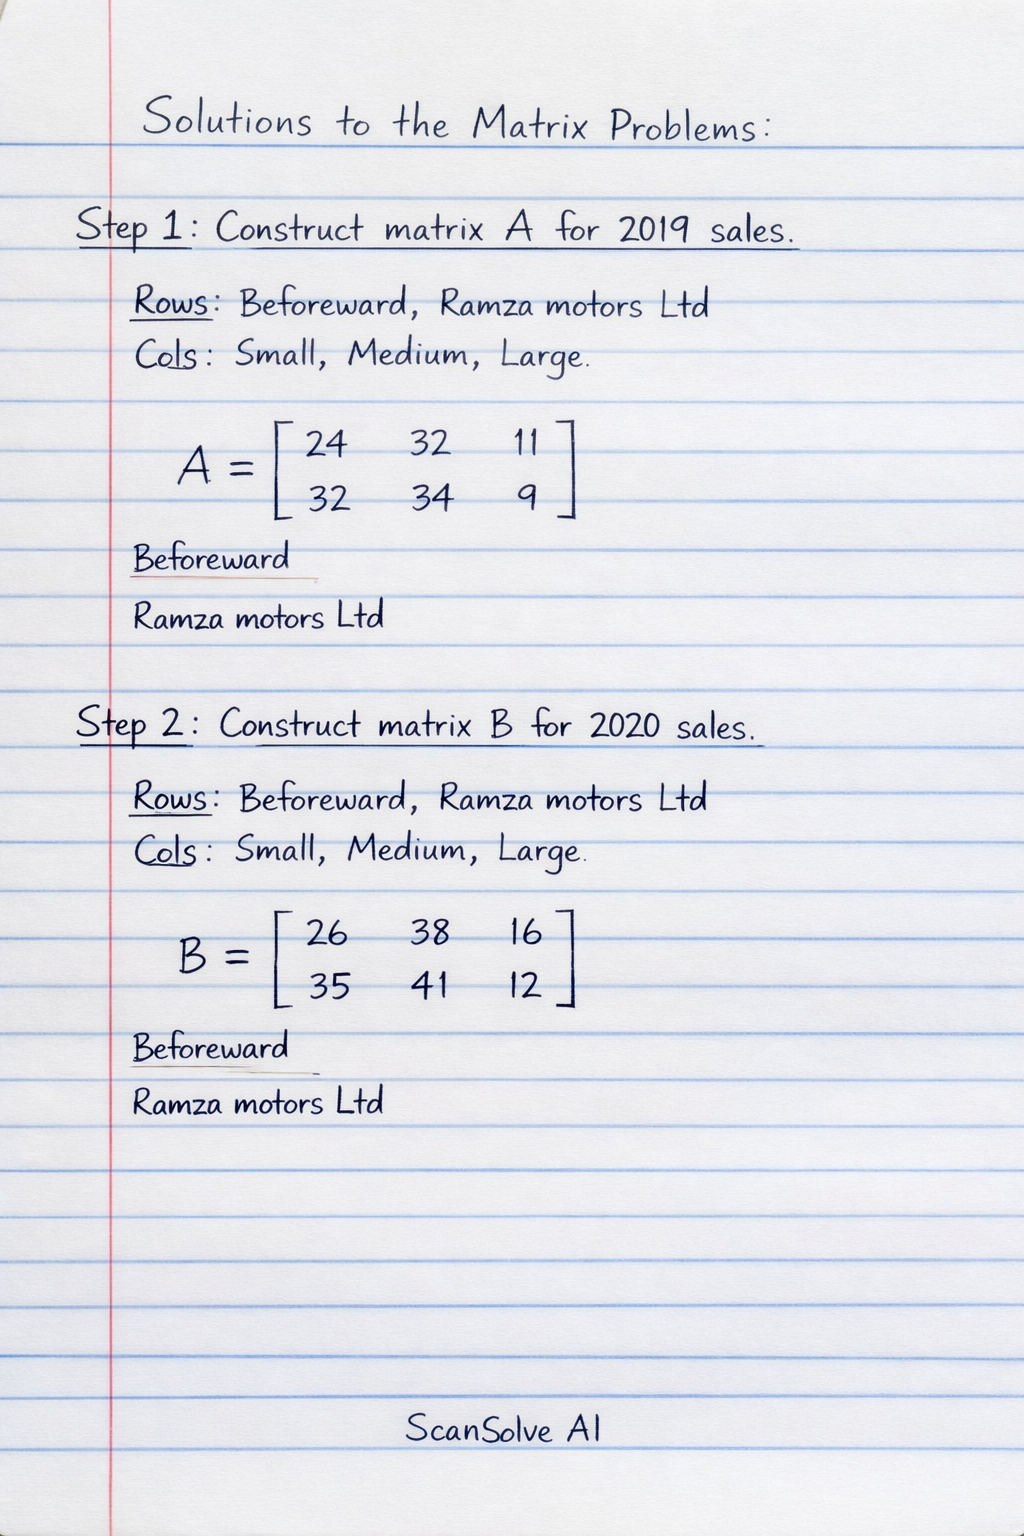 Solutions to the Matrix Problems:
Step 1: Construct matrix A for 2019 sales.
Rows: Beforeward, Ramza motors Ltd
Cols: Small, Medium, Large.
A = [ 24 32 11
32 34 9 ]
Beforeward
Ramza motors Ltd
Step 2: Construct matrix B for 2020 sales.
Rows: Beforeward, Ramza motors Ltd
Cols: Small, Medium, Large.
B = [ 26 38 16
35 41 12 ]
Beforeward
Ramza motors Ltd
ScanSolve AI